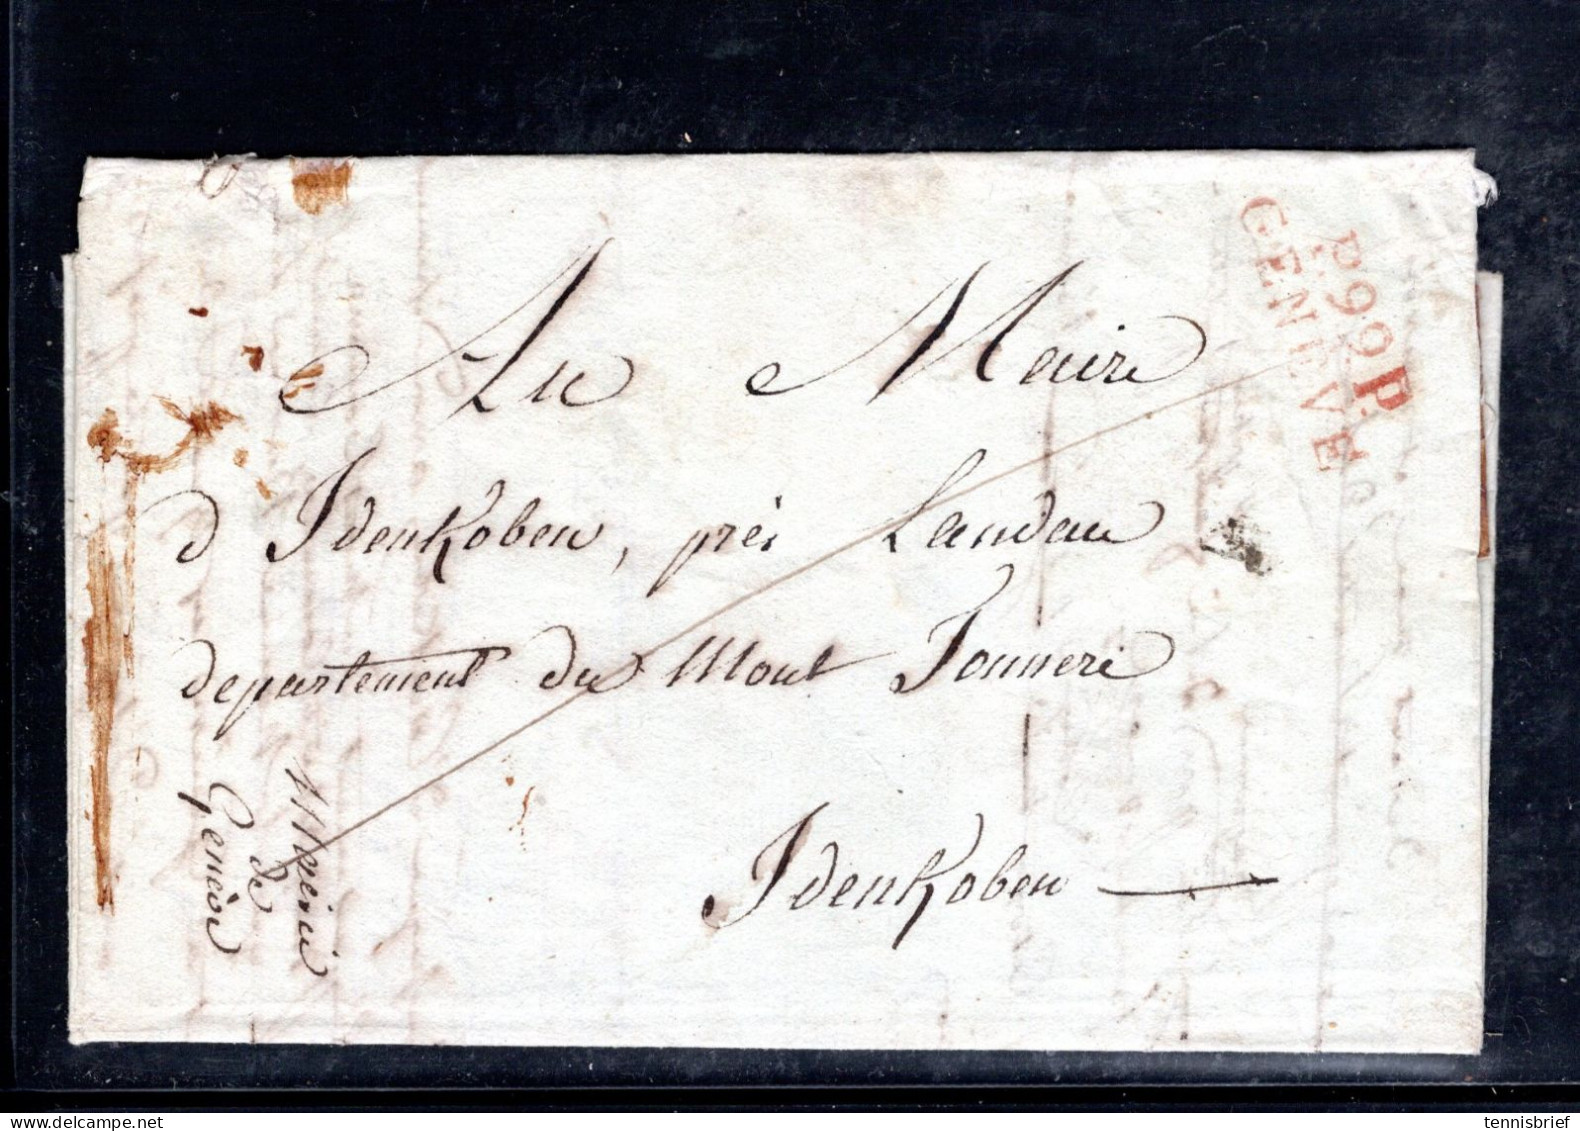 P.99.P.
GENEVE
Au Maire
d'Idenkoben, près Landau
departement du Mont Tonnere
Idenkoben
Mairie
de
Genève
tennisbrief